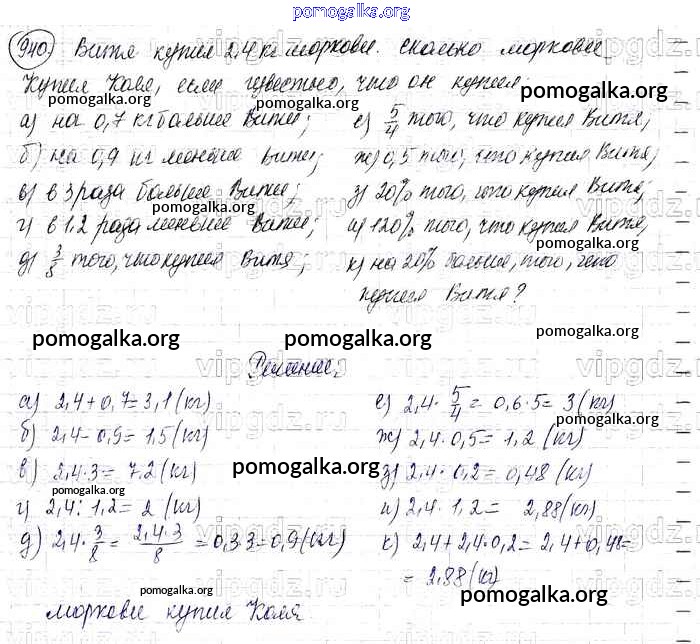 pomogalka.org
940. Витя купил 2,4 кг моркови. Сколько моркови
купил Коля, если известно, что он купил:
pomogalka.org
pomogalka.org
а) на 0,7 кг больше Вити;
б) на 0,9 кг меньше Вити;
в) в 3 раза больше Вити;
pomogalka.org
г) в 1,2 раза меньше Вити;
д) 3/8 того, что купил Витя;
е) 5/4 того, что купил Витя;
ж) 0,5 того, что купил Витя;
з) 20% того, что купил Витя;
и) 120% того, что купил Витя;
pomogalka.org
к) на 20% больше, того, что
купил Витя?
pomogalka.org
pomogalka.org
pomogalka.org
Решение:
а) 2,4 + 0,7 = 3,1 (кг)
pomogalka.org
б) 2,4 - 0,9 = 1,5 (кг)
в) 2,4 · 3 = 7,2 (кг)
pomogalka.org
pomogalka.org
г) 2,4 : 1,2 = 2 (кг)
д) 2,4 · 3/8 = 2,4·3/8 = 0,3·3 = 0,9 (кг)
е) 2,4 · 5/4 = 0,6 · 5 = 3 (кг)
pomogalka.org
ж) 2,4 · 0,5 = 1,2 (кг)
з) 2,4 · 0,2 = 0,48 (кг)
и) 2,4 · 1,2 = 2,88 (кг)
к) 2,4 + 2,4 · 0,2 = 2,4 + 0,48 =
= 2,88 (кг)
pomogalka.org
pomogalka.org
моркови купил Коля
vipgdz.ru